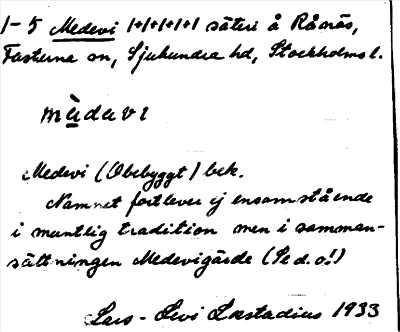 1-5 Medevi 1+1+1+1+1 säteri å Rånäs,
Fasterna sn, Sjuhundra hd, Stockholms l.
mèdevi
Medevi (Obebyggt) bek.
Namnet fortlever ej ensamstående
i muntlig tradition men i samman-
sättningen Medevigärde (Se d.o!)
Lars-Levi Læstadius 1933